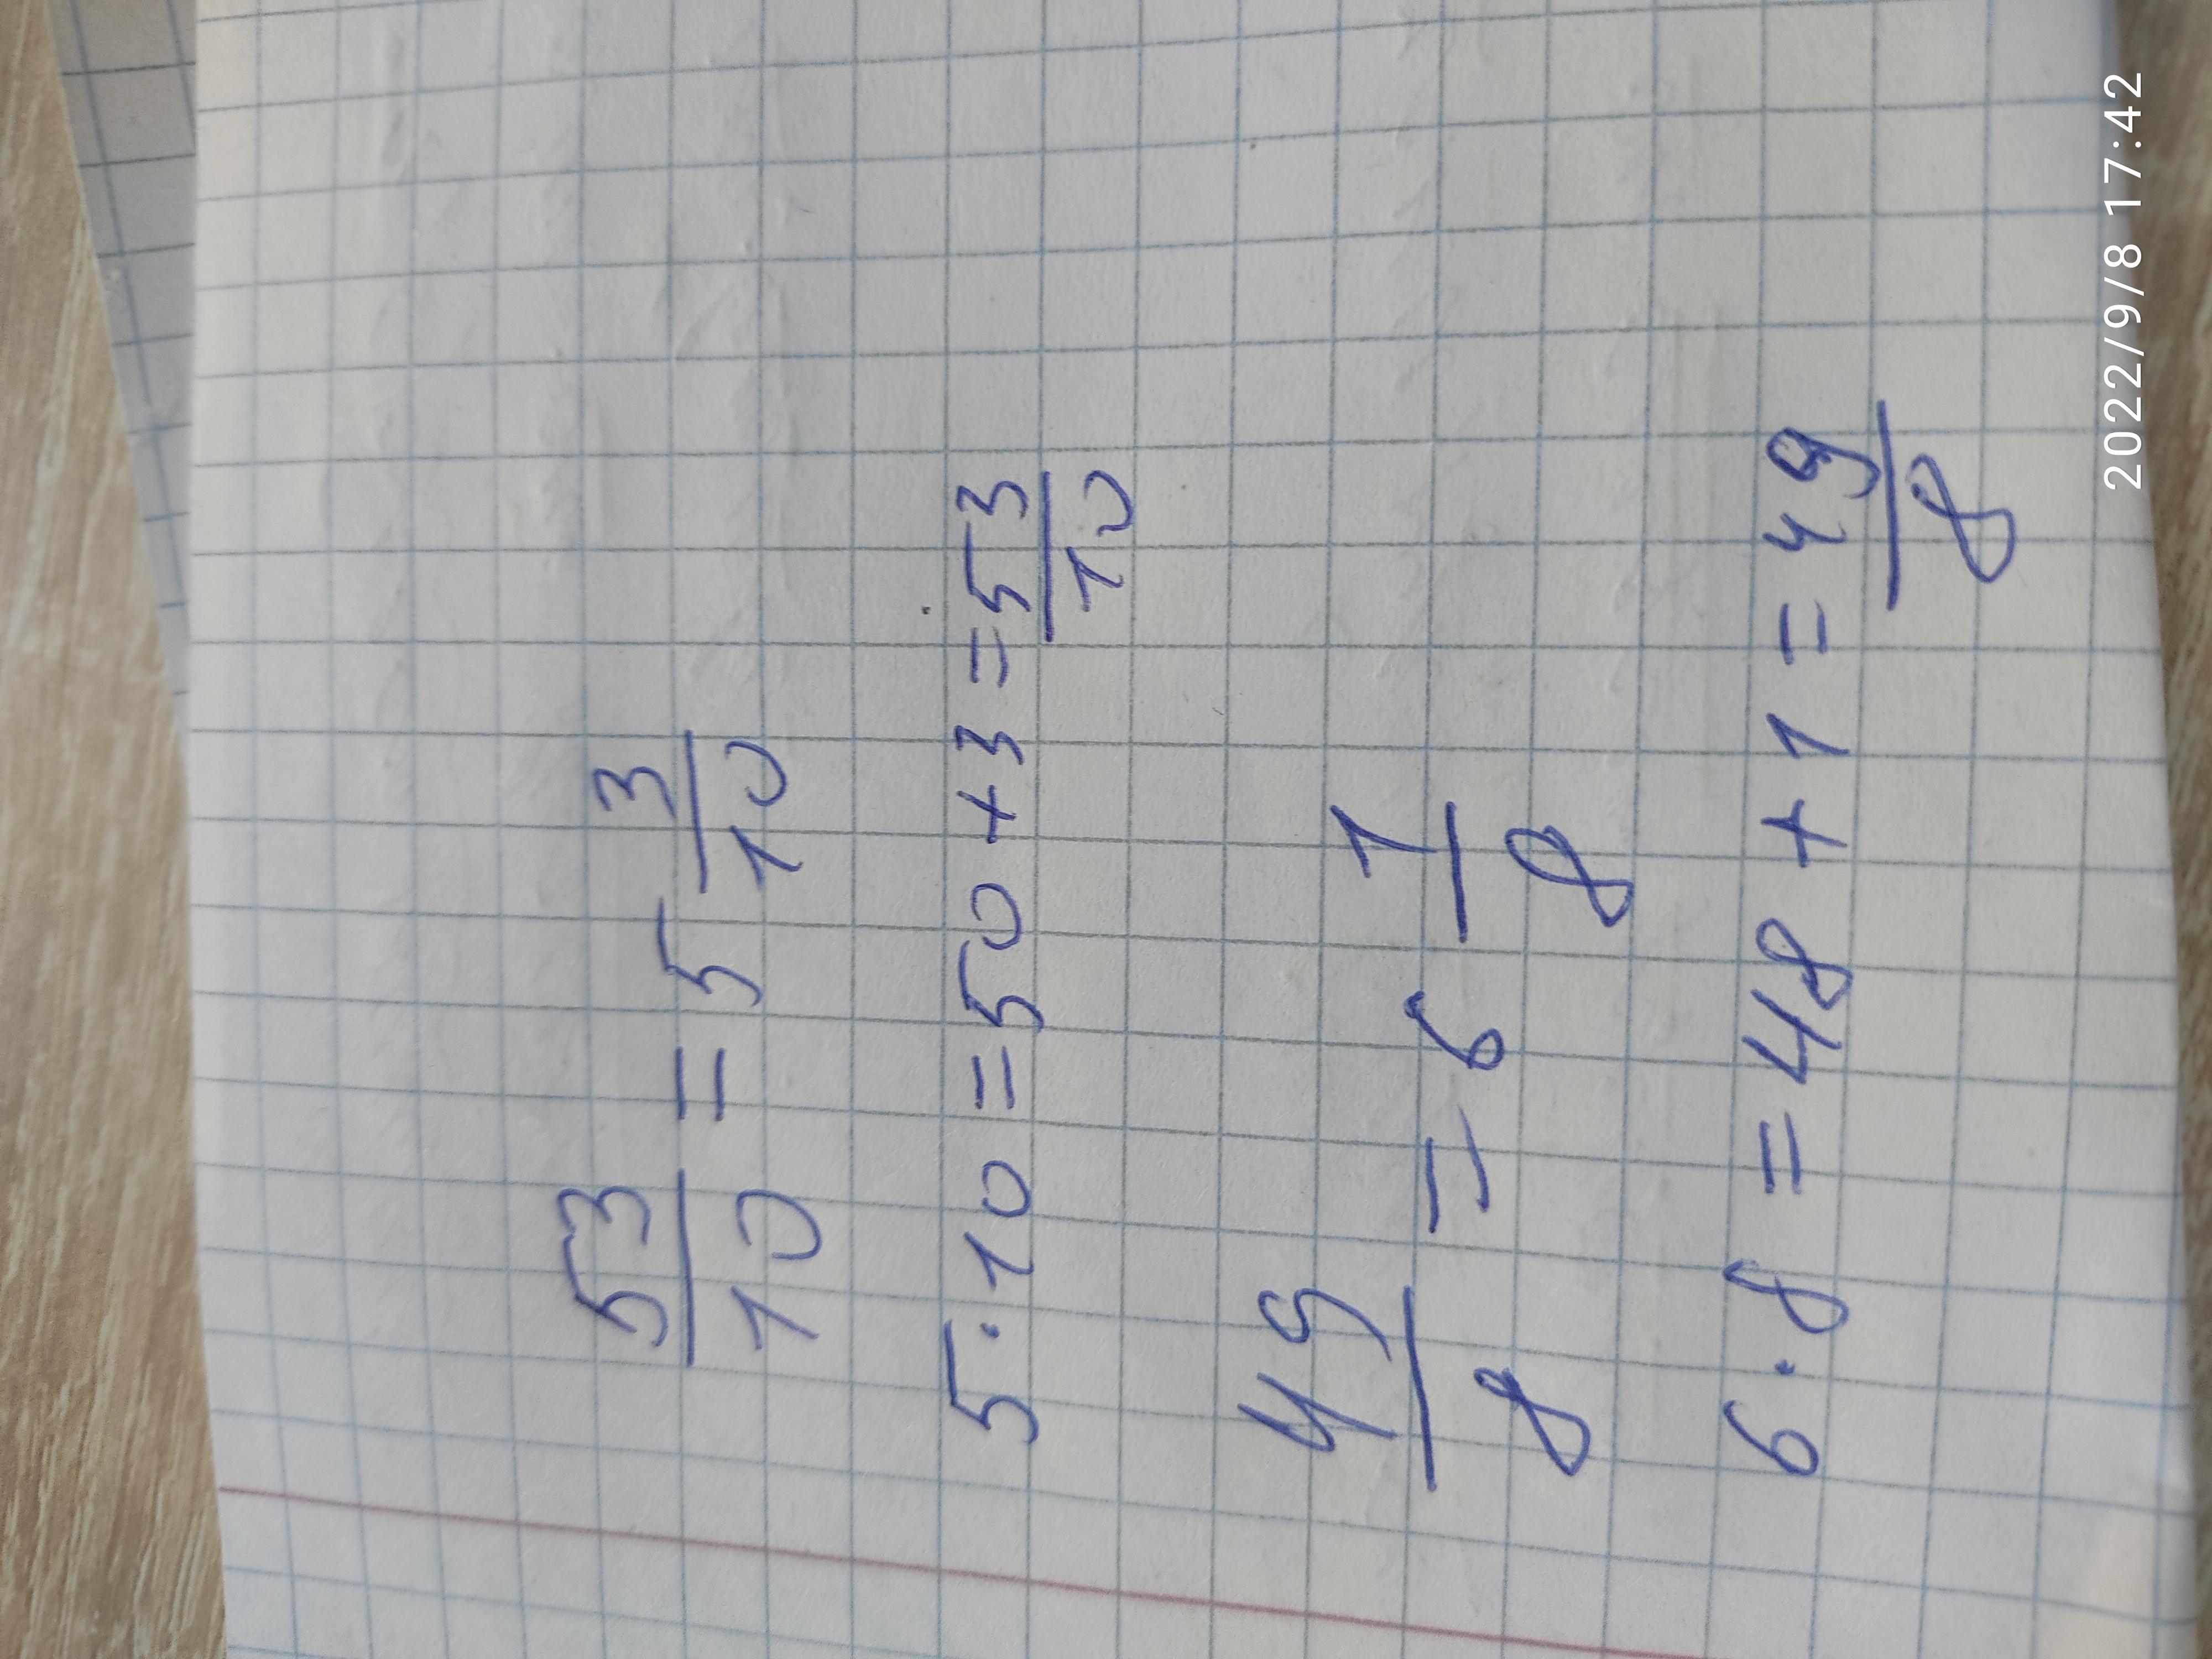 53/10 = 5 3/10
5·10 = 50 + 3 = 53/10
49/8 = 6 1/8
6·8 = 48 + 1 = 49/8
2022/9/8 17:42